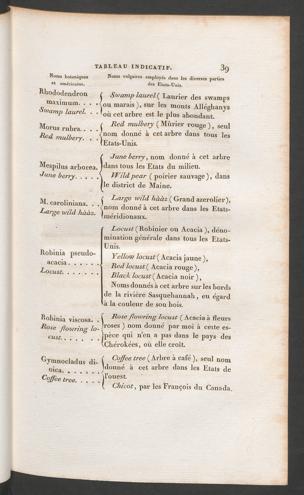 TABLEAU INDICATIF. 39
Noms botaniques et américains.
Noms vulgaires employés dans les diverses parties des Etats-Unis.
Rhododendron
maximum. . . .
Swamp laurel. . .
Swamp laurel (Laurier des swamps
ou marais), sur les monts Alléghanys
où cet arbre est le plus abondant.
Morus rubra. . . .
Red mulberry. . . .
Red mulbery (Mûrier rouge), seul
nom donné à cet arbre dans tous les
Etats-Unis.
Mespilus arborea.
June berry. . . . .
June berry, nom donné à cet arbre
dans tous les Etats du milieu.
Wild pear (poirier sauvage), dans
le district de Maine.
M. caroliniana. . .
Large wild hààz.
Large wild hààz (Grand azerolier),
nom donné à cet arbre dans les Etats-
méridionaux.
Robinia pseudo-
acacia. . . . . .
Locust. . . . . .
Locust (Robinier ou Acacia), déno-
mination générale dans tous les Etats-
Unis.
Yellow locust (Acacia jaune),
Red locust (Acacia rouge),
Black locust (Acacia noir),
Noms donnés à cet arbre sur les bords
de la rivière Sasquehannah, eu égard
à la couleur de son bois.
Robinia viscosa. . .
Rose flowring lo-
cust. . . . . .
Rose flowring locust (Acacia à fleurs
roses) nom donné par moi à cette es-
pèce qui n'en a pas dans le pays des
Chérokées, où elle croît.
Gymnocladus di-
oica. . . . . . .
Coffee tree. . . . .
Coffee tree (Arbre à café), seul nom
donné à cet arbre dans les Etats de
l'ouest.
Chicot, par les François du Canada.